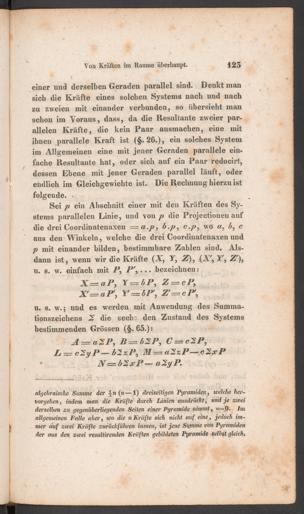 Von Kräften im Raume überhaupt. 125
einer und derselben Geraden parallel sind. Denkt man
sich die Kräfte eines solchen Systems nach und nach
zu zweien mit einander verbunden, so übersieht man
schon im Voraus, dass, da die Resultante zweier pa-
rallelen Kräfte, die kein Paar ausmachen, eine mit
ihnen parallele Kraft ist (§. 26.), ein solches System
im Allgemeinen eine mit jener Geraden parallele ein-
fache Resultante hat, oder sich auf ein Paar reducirt,
dessen Ebene mit jener Geraden parallel läuft, oder
endlich im Gleichgewichte ist. Die Rechnung hierzu ist
folgende.
Sei p ein Abschnitt einer mit den Kräften des Sy-
stems parallelen Linie, und von p die Projectionen auf
die drei Coordinatenaxen = a.p, b.p, c.p, wo a, b, c
aus den Winkeln, welche die drei Coordinatenaxen und
p mit einander bilden, bestimmbare Zahlen sind. Als-
dann ist, wenn wir die Kräfte (X, Y, Z), (X', Y', Z'),
u. s. w. einfach mit P, P', ... bezeichnen:
X = aP, Y = bP, Z = cP,
X' = aP', Y' = bP', Z' = cP',
u. s. w.; und es werden mit Anwendung des Summa-
tionszeichens Σ die sechs den Zustand des Systems
bestimmenden Grössen (§. 65.):
A = aΣP, B = bΣP, C = cΣP,
L = cΣyP − bΣzP, M = aΣzP − cΣxP
N = bΣxP − aΣyP.
algebraische Summe der ½n (n−1) dreiseitigen Pyramiden, welche her-
vorgehen, indem man die Kräfte durch Linien ausdrückt, und je zwei
derselben zu gegenüberliegenden Seiten einer Pyramide nimmt, = 0. Im
allgemeinen Falle aber, wo die n Kräfte sich nicht auf eine, jedoch im-
mer auf zwei Kräfte zurückführen lassen, ist jene Summe von Pyramiden
der aus den zwei resultirenden Kräften gebildeten Pyramide selbst gleich.